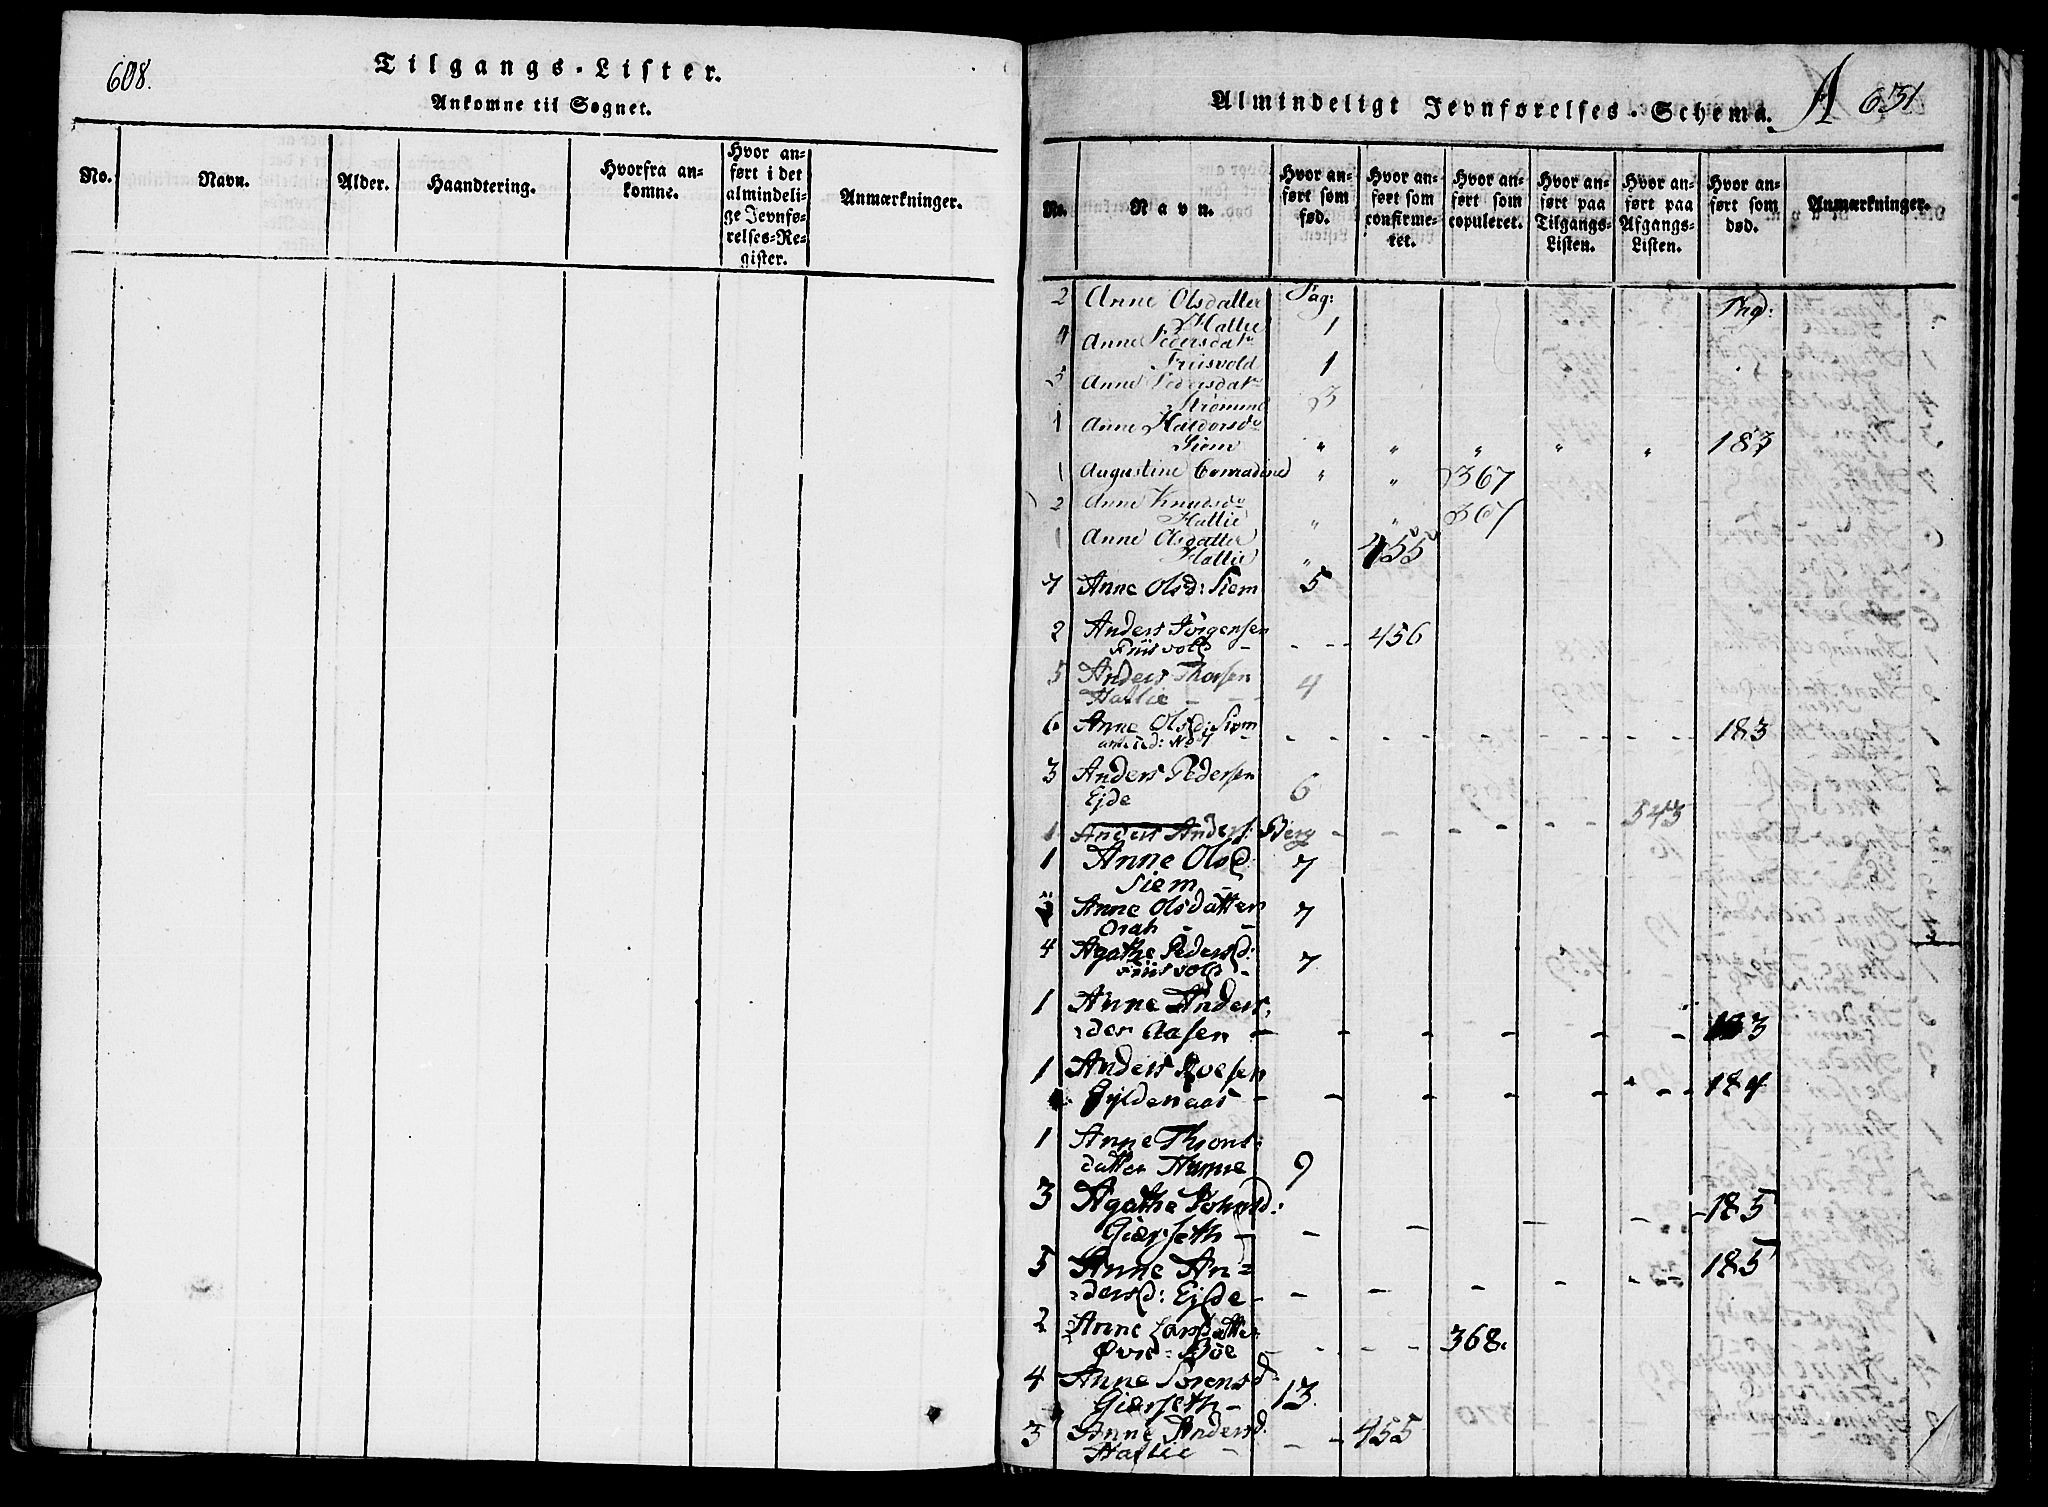 608.
Tilgangs-Lister.
Ankomne til Sognet.
No.
Navn.
Alder.
Haandtering.
Hvorfra an-
komne.
Hvor an-
ført i det
almindeli-
ge Jevnfø-
relses-Re-
gister.
Anmærkninger.
Almindeligt Jevnførelses-Schema. A 631
No.
Navn.
Hvor an-
ført som
fød.
Hvor an-
ført som
confirme-
ret.
Hvor an-
ført som
copuleret.
Hvor an-
ført paa
Tilgangs-
Listen.
Hvor an-
ført paa
Afgangs-
Listen.
Hvor an-
ført som
død.
Anmærkninger.
2 Anne Olsdatter Pag: Pag:
Hattie 1
4 Anne Pedersdatr
Friisvold 1
5 Anne Pedersdatr
Strømme 3
1 Anne Haldorsdr
Siem " " " " " 183
1 Augustine Conradine " " 367
2 Anne Knudsdr
Hattie " " 367
1 Anne Olsdatter
Hattie " 455
7 Anne Olsd: Siem 5
2 Anders Jørgensen
Friisvold - - - 456
5 Anders Thorsen
Hattie - - - 4
6 Anne Olsd: Siem
- - - - - 183
3 Anders Pedersen
Ejde 6
1 Anders Anders: Berg - - - - - 543
1 Anne Olsd
Siem 7
Anne Olsdatter
- - 7
4 Agathe Pedersd:
Friisvold - 7
1 Anne Anders
der Aasen - - - - - - 183
1 Anders
Gyldenaas - - - - - - 184
1 Anne Throns
datter Hamre 9
3 Agathe Johnsd:
Giærseth - - - - - 185
5 Anne An-
dersd: Ejde - - - - - - 185
2 Anne Larsdatter
- Boe - - - 368.
4 Anne Sørensd
Giærseth - 13.
3 Anne Andersd.
Hattie - - - 455